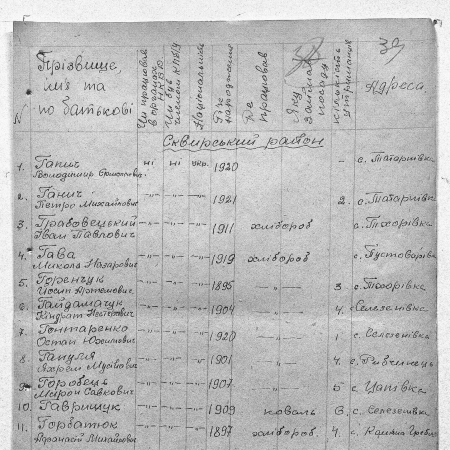 Прізвище, ім'я та по батькові
Чи працював в органах НКВС
Чи був членом КП/б/У
Національність
Рік народження
Де працював
Яку займав посаду
Кількість утриманців
Адреса
Сквирський район
1. Ганич Володимир ні ні укр. 1920 – с. Татарівка
2. Ганич Петро Михайлович –"– –"– –"– 1921 2 с. Татарівка
3. Грабовецький Іван Павлович –"– –"– –"– 1911 хлібороб с. Тхорівка
4. Гава Микола Назарович –"– –"– –"– 1919 хлібороб с. Пустоварівка
5. Горенчук Йосип Артемович –"– –"– –"– 1895 –"– 3 с. Тхорівка
6. Гайдамачук Кіндрат Нестерович –"– –"– –"– 1904 –"– 4. с. Селезенівка
7. Гонтаренко Остап Юхимович –"– –"– –"– 1920 –"– 1 с. Селезенівка
8 Гануля Яхрем Мусійович –"– –"– –"– 1901 –"– 4. с. Рибчинець
9. Горовець Мирон Савкович –"– –"– –"– 1907 –"– 5 с. Цапівка
10. Гаврищук –"– –"– –"– 1909 коваль 6. с. Селезенівка
11. Горбатюк Афанасій Михайлович –"– –"– –"– 1897 хлібороб. 4. с. Кам'яна Гребля